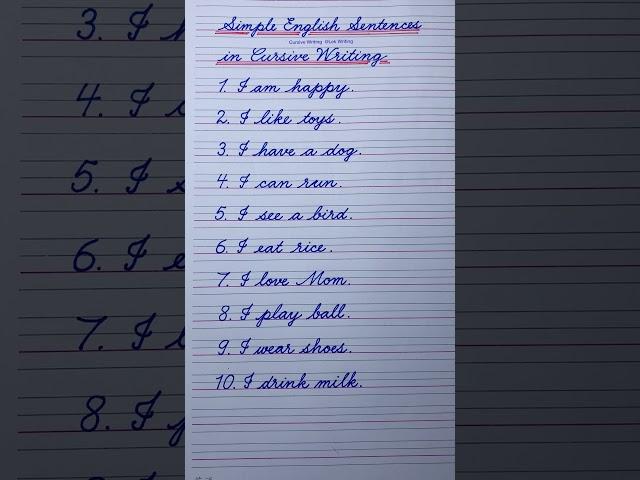 Simple English Sentences
Cursive Writing
in Cursive Writing
1. I am happy.
2. I like toys.
3. I have a dog.
4. I can run.
5. I see a bird.
6. I eat rice.
7. I love Mom.
8. I play ball.
9. I wear shoes.
10. I drink milk.
3. I
4. I
5. I
6. I
7. I
8. I